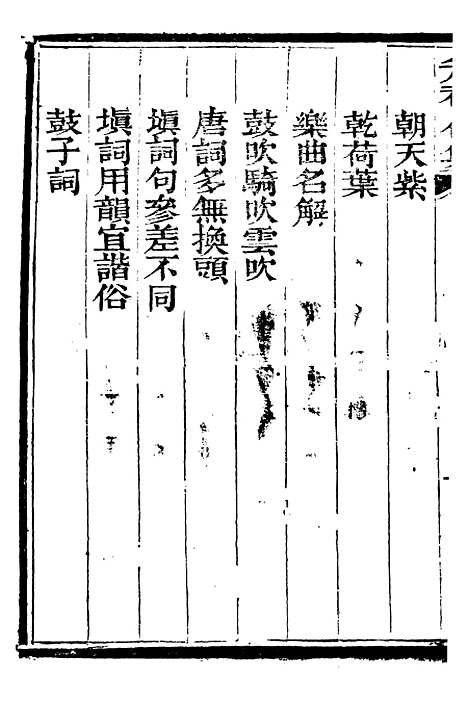 朝天紫
乾荷葉
樂曲名解
鼓吹騎吹雲吹
唐詞多無換頭
塡詞句參差不同
塡詞用韻宜諧俗
鼓子詞